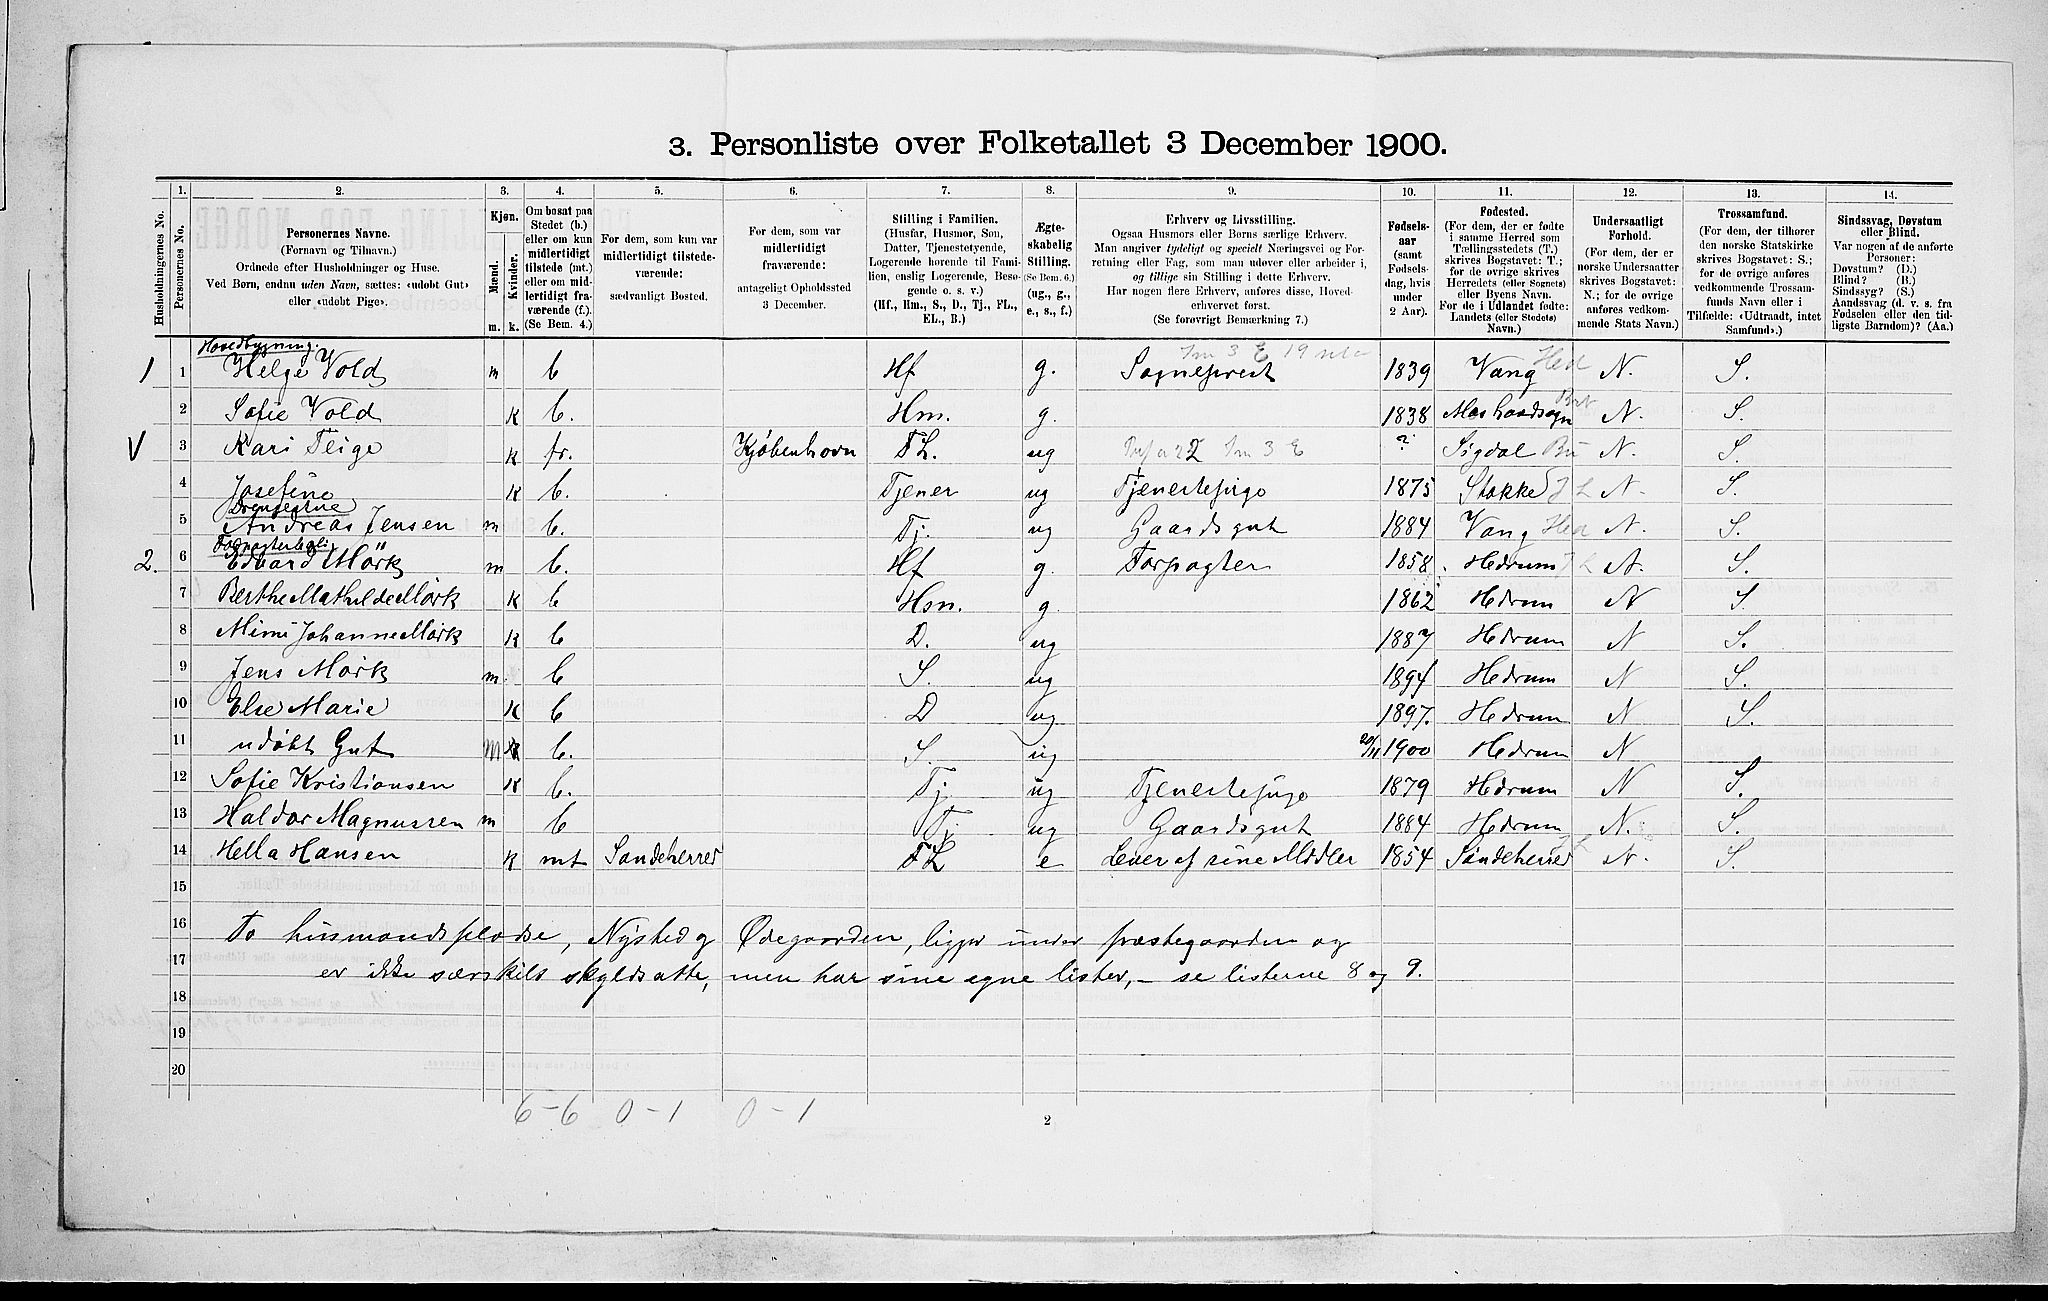 3. Personliste over Folketallet 3 December 1900.
Husholdningernes No.
1. Personernes No.
2. Personernes Navne. (Fornavn og Tilnavn.) Ordnede efter Husholdninger og Huse. Ved Børn, endnu uden Navn, sættes: «udøbt Gut» eller «udøbt Pige».
3. Kjøn. Mænd. m. Kvinder. k.
4. Om bosat paa Stedet (b.) eller om kun midlertidigt tilstede (mt.) eller om midlertidigt fraværende (f.). (Se Bem. 4.)
5. For dem, som kun var midlertidigt tilstedeværende: sædvanligt Bosted.
6. For dem, som var midlertidigt fraværende: antageligt Opholdssted 3 December.
7. Stilling i Familien. (Husfar, Husmor, Søn, Datter, Tjenestetyende, Logerende hørende til Familien, enslig Logerende, Besøgende o. s. v.) (Hf., Hm., S., D., Tj., FL., EL., B.)
8. Ægteskabelig Stilling. (Se Bem. 6.) (ug., g., e., s., f.)
9. Erhverv og Livsstilling. Ogsaa Husmors eller Børns særlige Erhverv. Man angiver tydeligt og specielt Næringsvei og Forretning eller Fag, som man udover eller arbeider i, og tillige sin Stilling i dette Erhverv. Har nogen flere Erhverv, anføres disse, Hovederhvervet først. (Se forøvrigt Bemærkning 7.)
10. Fødselsaar (samt Fødselsdag, hvis under 2 Aar).
11. Fødested. (For dem, der er fødte i samme Herred som Tællingsstedets (T.) skrives Bogstavet: T.; for de øvrige skrives Herredets (eller Sognets) eller Byens Navn. For de i Udlandet fødte: Landets (eller Stedets) Navn.)
12. Undersaatligt Forhold. (For dem, der er norske Undersaatter skrives Bogstavet: N.; for de øvrige anføres vedkommende Stats Navn.)
13. Trossamfund. (For dem, der tilhører den norske Statskirke skrives Bogstavet: S.; for de øvrige anføres vedkommende Trossamfunds Navn eller i Tilfælde: «Udtraadt, intet Samfund».)
14. Sindssvag, Døvstum eller Blind. Var nogen af de anførte Personer: Døvstum? (D.) Blind? (B.) Sindssyg? (S.) Aandssvag (d. v. s. fra Fødselen eller den tidligste Barndom)? (Aa.)
Hovedbygning.
1 1 Helge Vold m b Hf g. Sogneprest 1839 Vang Hed N. S.
2 Sofie Vold k b. Hm. g. 1838 N. S.
V 3 Kari Teige k fr. Kjøbenhavn FL. ug ? Sigdal Bu N. S.
4 Josefine k b. Tjener ug Tjenestepige 1875 Stokke J L N. S.
5 Andreas Jensen m b. Tj. ug Gaardsgut 1884 Vang Hed N. S.
2. 6 Edvard Mörk m b. Hf g. Forpagter 1858 Hedrum J L N. S.
7 Berthe Mathilde Mörk k b Hm. g. 1862 Hedrum N S
8 Mimi Johanne Mörk k b D. ug 1887 Hedrum N S.
9 Jens Mörk m. b S. ug 1894 Hedrum N S.
10 Else Marie k b D ug 1897. Hedrum N S.
11 udøbt Gut m b. S. ug 20/11 1900 Hedrum N
12 Sofie Kristiansen k b. Tj. ug Tjenestepige 1879 Hedrum N S.
13 Haldor Magnussen m b Tj ug Gaardsgut 1884 Hedrum N. S.
14 Hella Hansen k mt Sandeherred FL e Lever af sine Midler 1854 Sandeherred N. S.
15
16 To husmandspladse, Nysted og Ødegaarden, ligger under præstegaarden og
17 er ikke særskilt skyldsatte, men har sine egne lister, – se listerne 8 og 9.
18
19
20
6 – 6 0 – 1 0 – 1
2